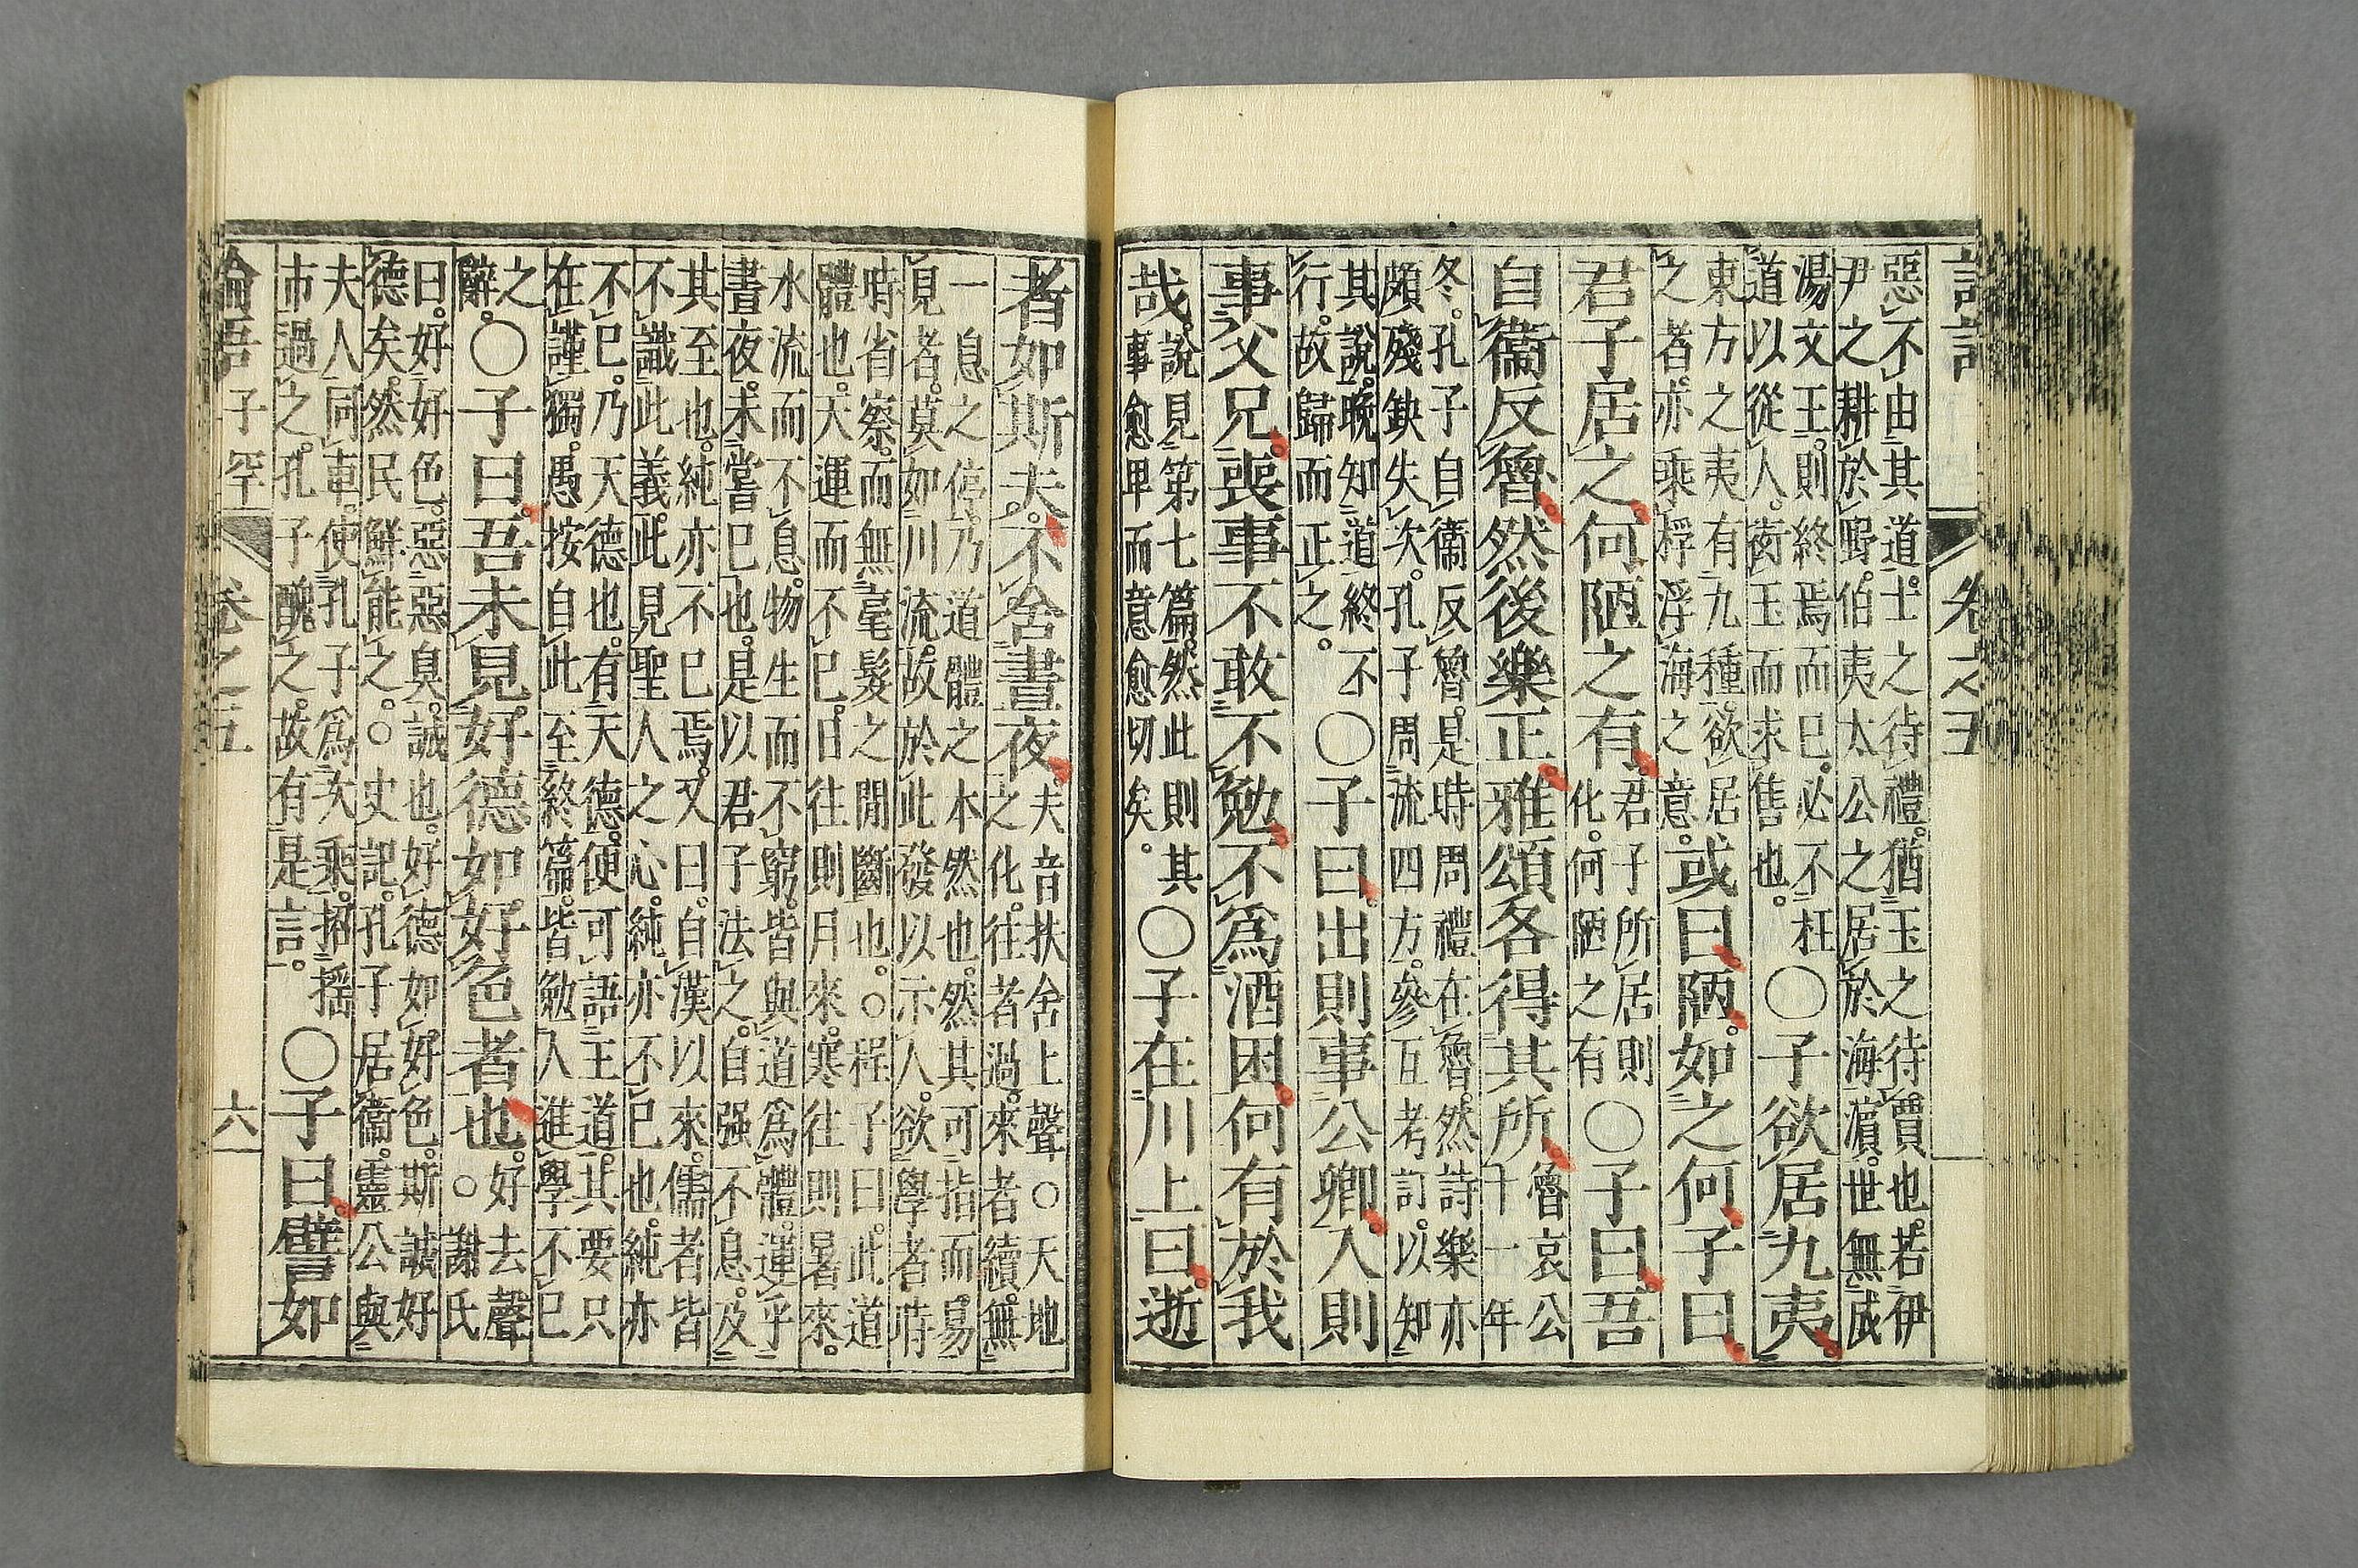 卷之五
惡不由其道。士之待禮。猶玉之待賈也。若伊
尹之耕於野。伯夷太公之居於海濱。世無成
湯文王。則終焉而已。必不枉
道以從人。衒玉而求售也。
〇子欲居九夷。
東方之夷有九種。欲居
之者。亦乘桴浮海之意。
或曰。陋。如之何。子曰。
君子居之。何陋之有。
君子所居則
化。何陋之有
〇子曰。吾
自衞反魯。然後樂正。雅頌各得其所。
魯哀公
十一年
冬。孔子自衞反魯。是時周禮在魯。然詩樂亦
頗殘缺失次。孔子周流四方。參互考訂。以知
其說。晚知道終不
行。故歸而正之。
〇子曰。出則事公卿。入則
事父兄。喪事不敢不勉。不爲酒困。何有於我
哉。
說見第七篇。然此則其
事愈卑而意愈切矣。
〇子在川上曰。逝
者如斯夫。不舍晝夜。
夫音扶舍上聲○天地
之化。往者過。來者續。無
一息之停。乃道體之本然也。然其可指而易
見者。莫如川流。故於此發以示人。欲學者時
時省察。而無毫髮之閒斷也。○程子曰。此道
體也。天運而不已。日往則月來。寒往則暑來。
水流而不息。物生而不窮。皆與道爲體。運乎
晝夜。未嘗已也。是以君子法之。自强不息。及
其至也。純亦不已焉。又曰。自漢以來。儒者皆
不識此義。此見聖人之心。純亦不已也。純亦
不已。乃天德也。有天德。便可語王道。其要只
在謹獨。愚按自此至終篇。皆勉人進學不已
之
辭。
〇子曰。吾未見好德如好色者也。
好去聲
○謝氏
曰。好好色。惡惡臭。誠也。好德如好色。斯誠好
德矣。然民鮮能之。○史記。孔子居衞。靈公與
夫人同車。使孔子爲次乘。招搖
市過之。孔子醜之。故有是言。
〇子曰。譬如
子罕 卷之五 六